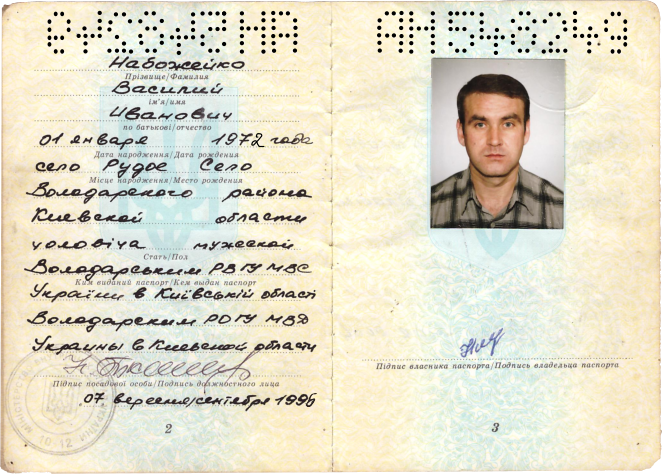 АН548249
Набожейко
Прізвище/Фамилия
Василий
ім'я/имя
Иванович
по батькові/отчество
01 января 1972 года
Дата народження/Дата рождения
село Рудое Село
Місце народження/Место рождения
Володарского района
Киевской области
чоловіча мужской
Стать/Пол
Володарським РВГУ МВС
Ким виданий паспорт/Кем выдан паспорт
України в Київській області
Володарским РОГУ МВД
Украины в Киевской области
Підпис посадової особи/Подпись должностного лица
07 вересня/сентября 1996
2
АН548249
Підпис власника паспорта/Подпись владельца паспорта
3